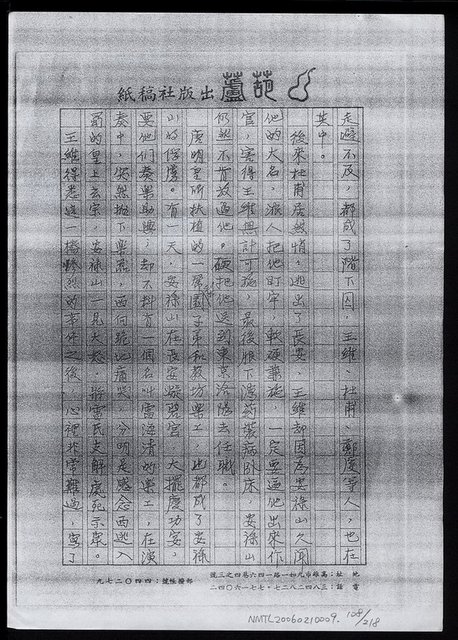 葫蘆出版社稿紙
走避不及，都成了階下囚，王維、杜甫、鄭虔等人，也在
其中。
後來杜甫居然悄悄逃出了長安，王維却因為安祿山久聞
他的大名，派人把他盯牢，軟硬兼施，一定要逼他出來作
官，害得王維無計可施，最後狠下瀉藥裝病臥床，安祿山
仍然不肯放過他。硬把他送到東京洛陽去任職。
唐明皇所扶植的一羣園子弟和教坊樂工，也都成了安祿
山的俘虜。有一天，安祿山在長安凝碧宮，大擺慶功宴，
要他們奏樂助興，却不料有一個名叫雷海清的樂工，在演
奏中，忽然拋下樂器，面向西地痛哭，分明是感念西逃入
蜀的皇上玄宗，安祿山一見大怒，將雷氏支解處死示眾。
王維得悉這一樁慘烈的事件之後，心裡非常難過，寫了
地址：高雄市九如一路一四六巷四之三號
電話：三八四二八二七・七七一六〇四二
郵撥帳號：四四〇二七九
NMTL20060210009. 108/218